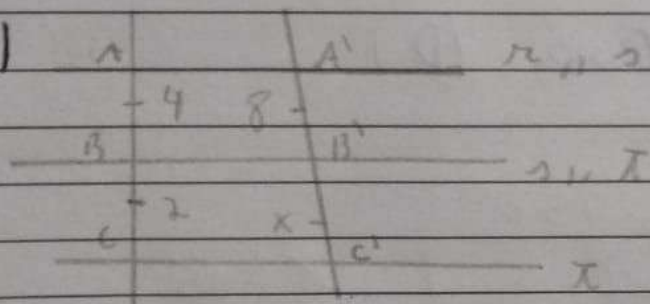 A A' r // s
4 8
B B' s // t
2 x
C C' t